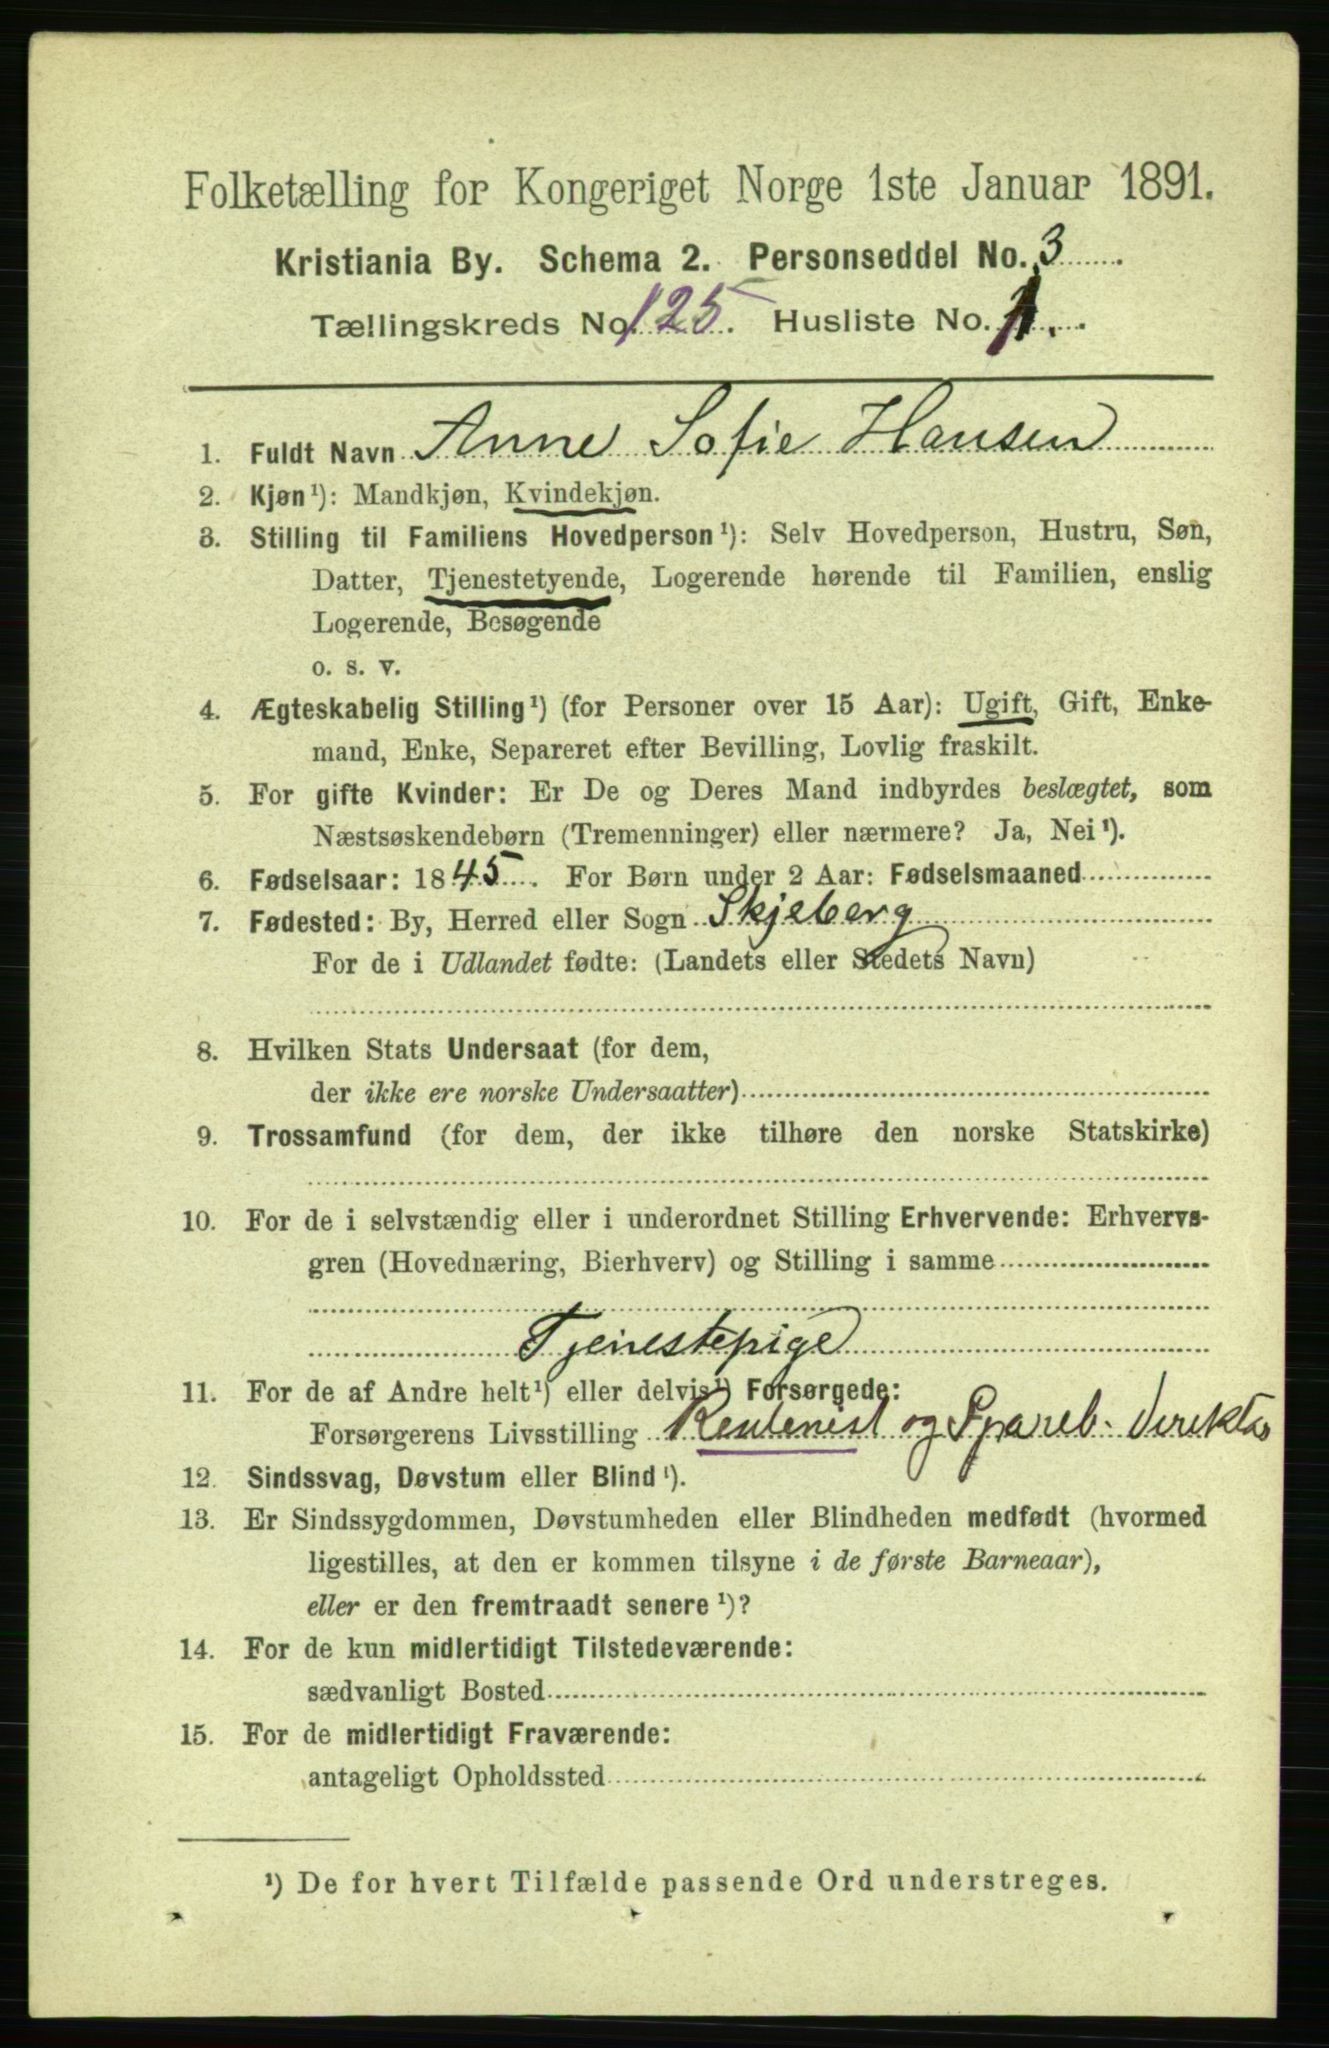 Folketælling for Kongeriget Norge 1ste Januar 1891.
Kristiania By. Schema 2. Personseddel No. 3
Tællingskreds No. 125. Husliste No. 1.
1. Fuldt Navn Anne Sofie Hansen
2. Kjøn ¹): Mandkjøn, Kvindekjøn.
3. Stilling til Familiens Hovedperson ¹): Selv Hovedperson, Hustru, Søn,
Datter, Tjenestetyende, Logerende hørende til Familien, enslig
Logerende, Besøgende
o. s. v.
4. Ægteskabelig Stilling ¹) (for Personer over 15 Aar): Ugift, Gift, Enke-
mand, Enke, Separeret efter Bevilling, Lovlig fraskilt.
5. For gifte Kvinder: Er De og Deres Mand indbyrdes beslægtet, som
Næstsøskendebørn (Tremenninger) eller nærmere? Ja, Nei ¹).
6. Fødselsaar: 1845. For Børn under 2 Aar: Fødselsmaaned
7. Fødested: By, Herred eller Sogn Skjeberg
For de i Udlandet fødte: (Landets eller Stedets Navn)
8. Hvilken Stats Undersaat (for dem,
der ikke ere norske Undersaatter)
9. Trossamfund (for dem, der ikke tilhøre den norske Statskirke)
10. For de i selvstændig eller i underordnet Stilling Erhvervende: Erhvervs-
gren (Hovednæring, Bierhverv) og Stilling i samme
Tjenestepige
11. For de af Andre helt ¹) eller delvis ¹) Forsørgede:
Forsørgerens Livsstilling Rentenist og Spareb. direktør
12. Sindssvag, Døvstum eller Blind ¹).
13. Er Sindssygdommen, Døvstumheden eller Blindheden medfødt (hvormed
ligestilles, at den er kommen tilsyne i de første Barneaar),
eller er den fremtraadt senere ¹)?
14. For de kun midlertidigt Tilstedeværende:
sædvanligt Bosted
15. For de midlertidigt Fraværende:
antageligt Opholdssted
¹) De for hvert Tilfælde passende Ord understreges.